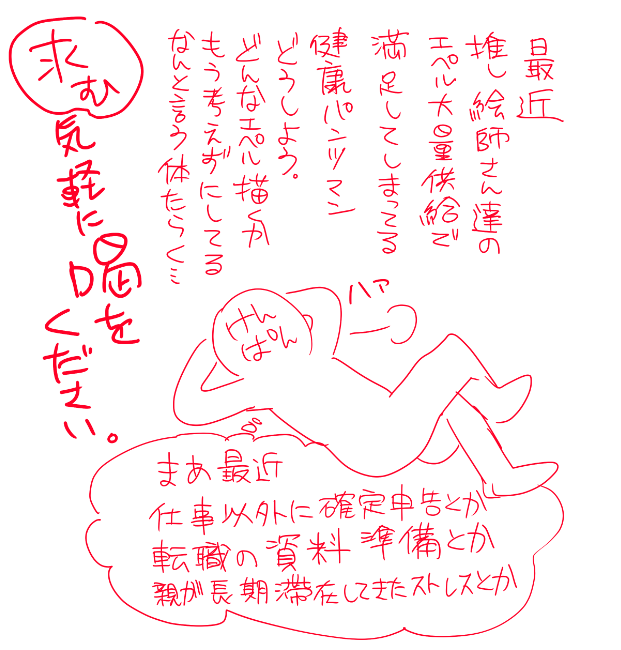 最近
推し絵師さん達の
エペル大量供給で
満足してしまってる
健康パンツマン
どうしよう。
どんなエペル描くか
もう考えずにしてる
なんと言う体たらく…
求む
気軽に喝を
ください。
ハァ
けん
ぱん
まあ最近
仕事以外に確定申告とか
転職の資料準備とか
親が長期滞在してきたストレスとか